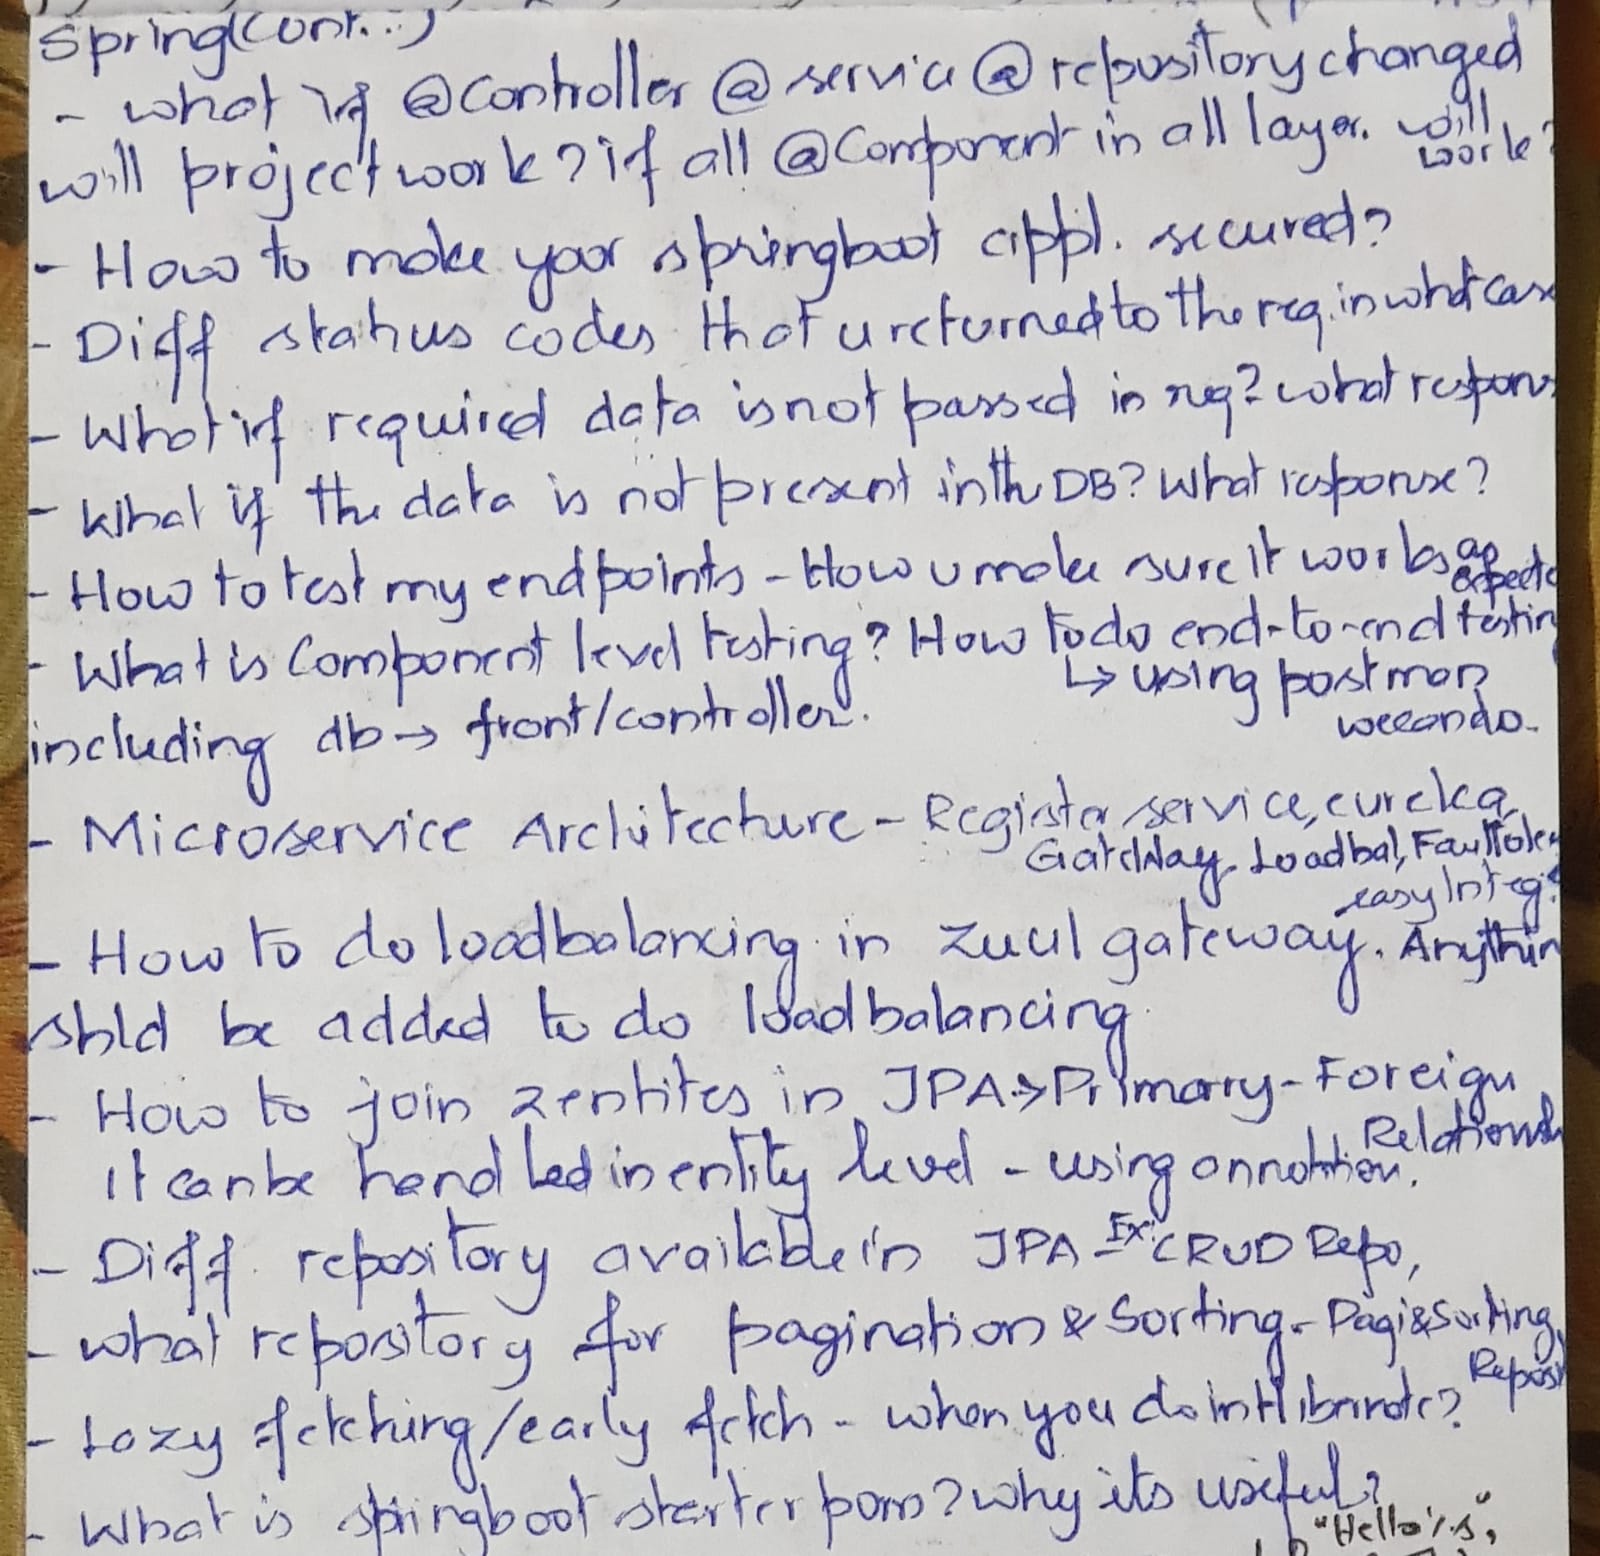 Spring(cont..)
- what if @Controller @service @repository changed
will project work? if all @Component in all layer. will work?
- How to make your springboot appl. secured?
- Diff status codes that u returned to the req. in what case
- What if required data is not passed in req? what respons
- What if the data is not present in the DB? What response?
- How to test my endpoints - How u make sure it works as expecte
- What is Component level testing? How to do end-to-end testin
↳ using postman
including db → front/controller. we can do.
- Microservice Architecture - Register service, eureka,
GateWay, Loadbal, Fault Toler
easy Integ.
- How to do loadbalancing in zuul gateway. Anythin
shld be added to do loadbalancing
- How to join 2 entites in JPA → Primary - Foreign
Relationsh
It can be handled in entity level - using annotation.
- Diff. repository available in JPA - Ex: CRUD Repo,
- what repository for pagination & Sorting - Pagi&Sorting
Reposi
- Lazy fetching/early fetch - when you do in Hibernate?
- What is springboot starter pom? why its useful?
"Hello %s"